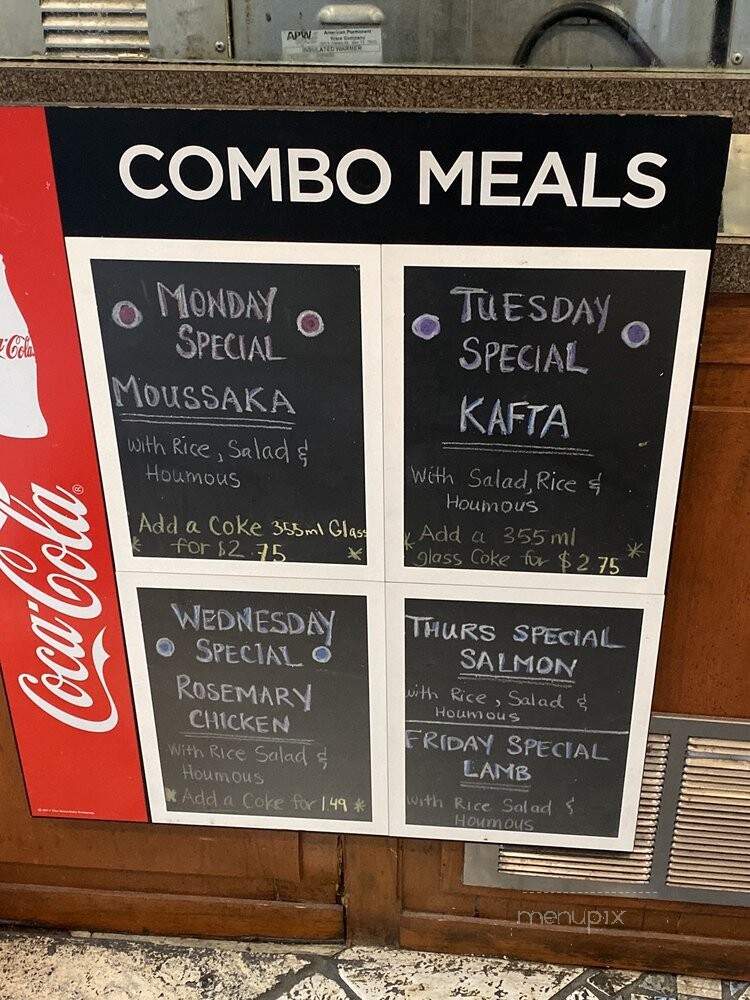 APW
American Permanent
Ware Company
INSULATED WARMER
COMBO MEALS
MONDAY
SPECIAL
MOUSSAKA
with Rice, Salad &
Houmous
Add a Coke 355ml Glass
for $2.75
TUESDAY
SPECIAL
KAFTA
With Salad, Rice &
Houmous
Add a 355ml
glass Coke for $2.75
WEDNESDAY
SPECIAL
ROSEMARY
CHICKEN
With Rice Salad &
Houmous
Add a Coke for 1.49
THURS SPECIAL
SALMON
with Rice, Salad &
Houmous
FRIDAY SPECIAL
LAMB
with Rice Salad &
Houmous
Coca-Cola®
menupix